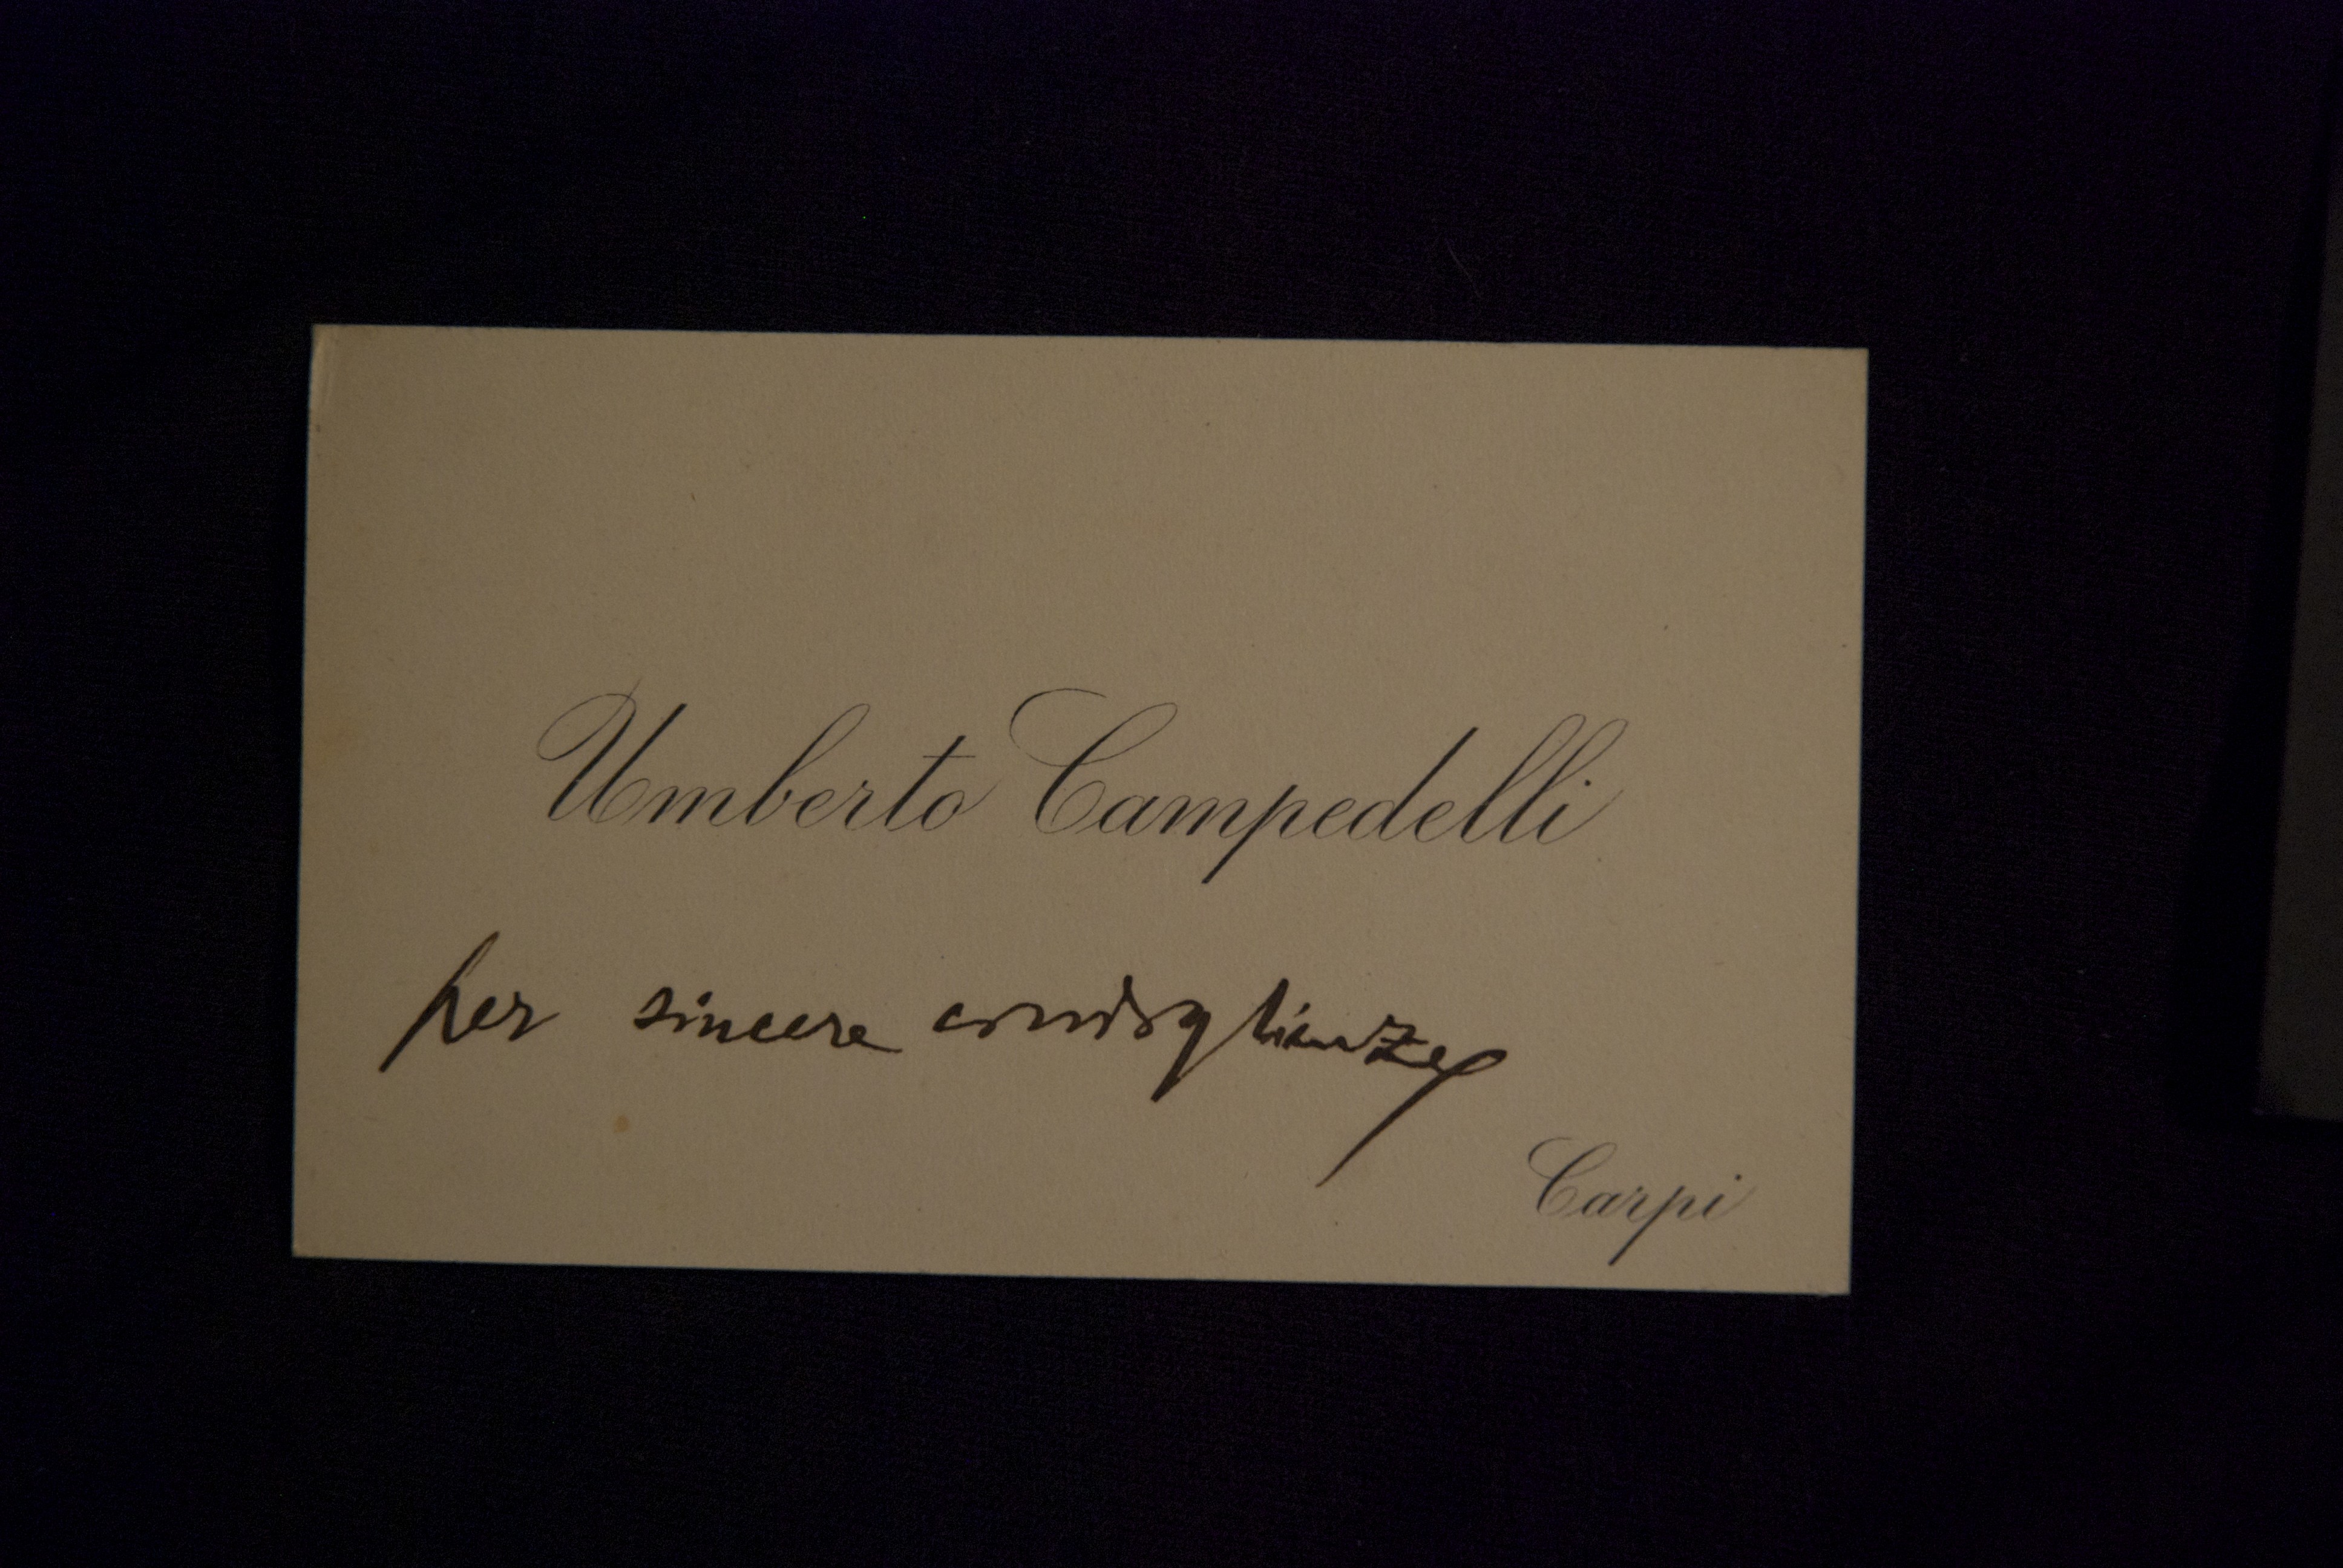 Umberto Campedelli
per sincere condoglianze
Carpi